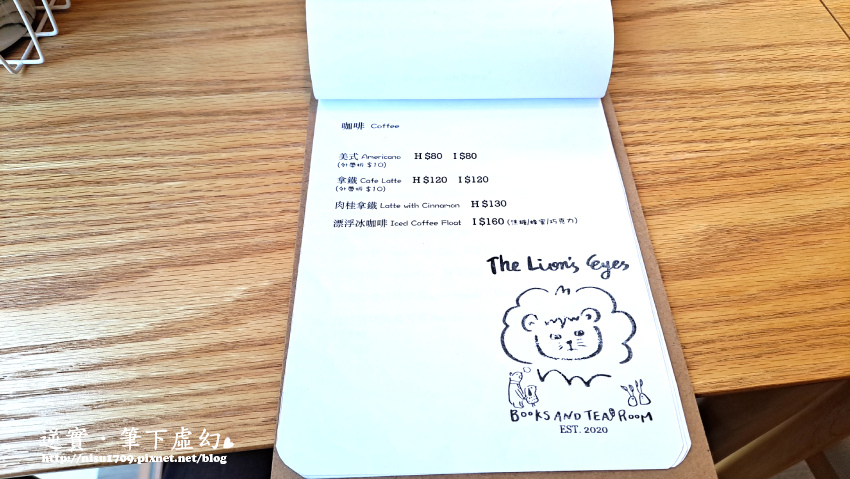 咖啡 Coffee
美式 Americano H $80 I $80
(外帶折 $10)
拿鐵 Cafe Latte H $120 I $120
(外帶折 $10)
肉桂拿鐵 Latte with Cinnamon H $130
漂浮冰咖啡 Iced Coffee Float I $160 (焦糖/蜂蜜/巧克力)
The Lion's Eyes
BOOKS AND TEA ROOM
EST. 2020
筆下虛幻
http://nisu1709.pixnet.net/blog